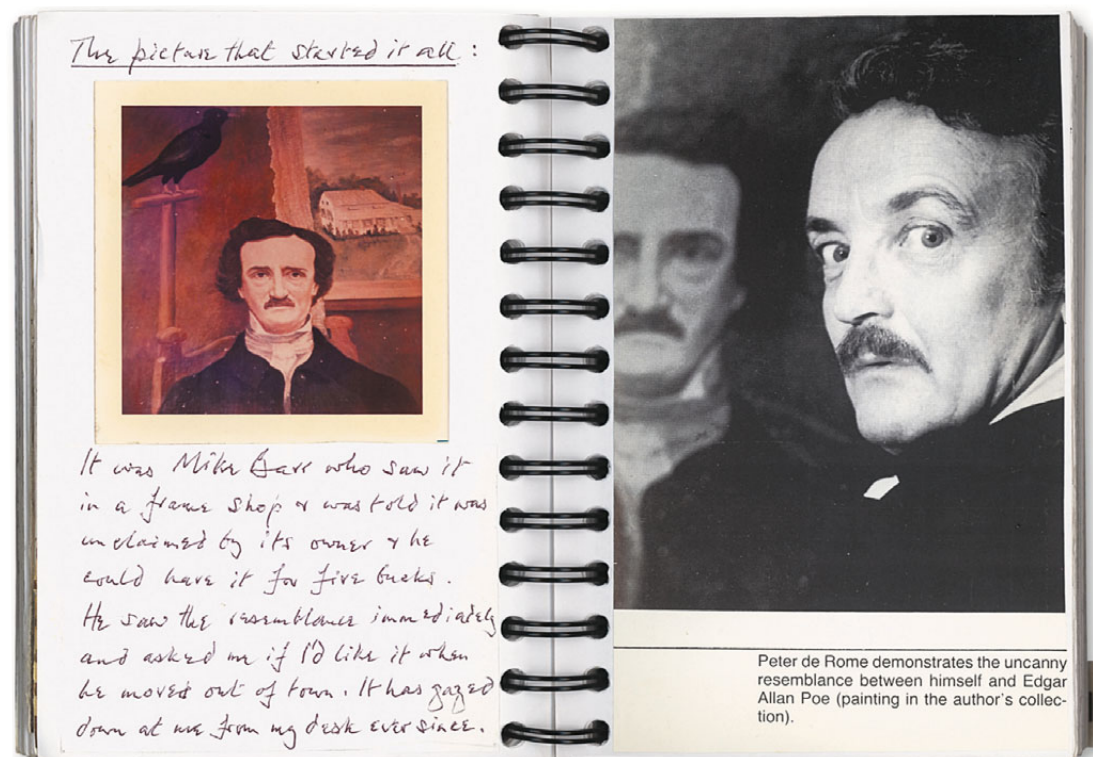 The picture that started it all :
It was Mike Barr who saw it
in a frame shop & was told it was
unclaimed by its owner & he
could have it for five bucks.
He saw the resemblance immediately
and asked me if I'd like it when
he moved out of town. It has gazed
down at me from my desk ever since.
Peter de Rome demonstrates the uncanny
resemblance between himself and Edgar
Allan Poe (painting in the author's collec-
tion).